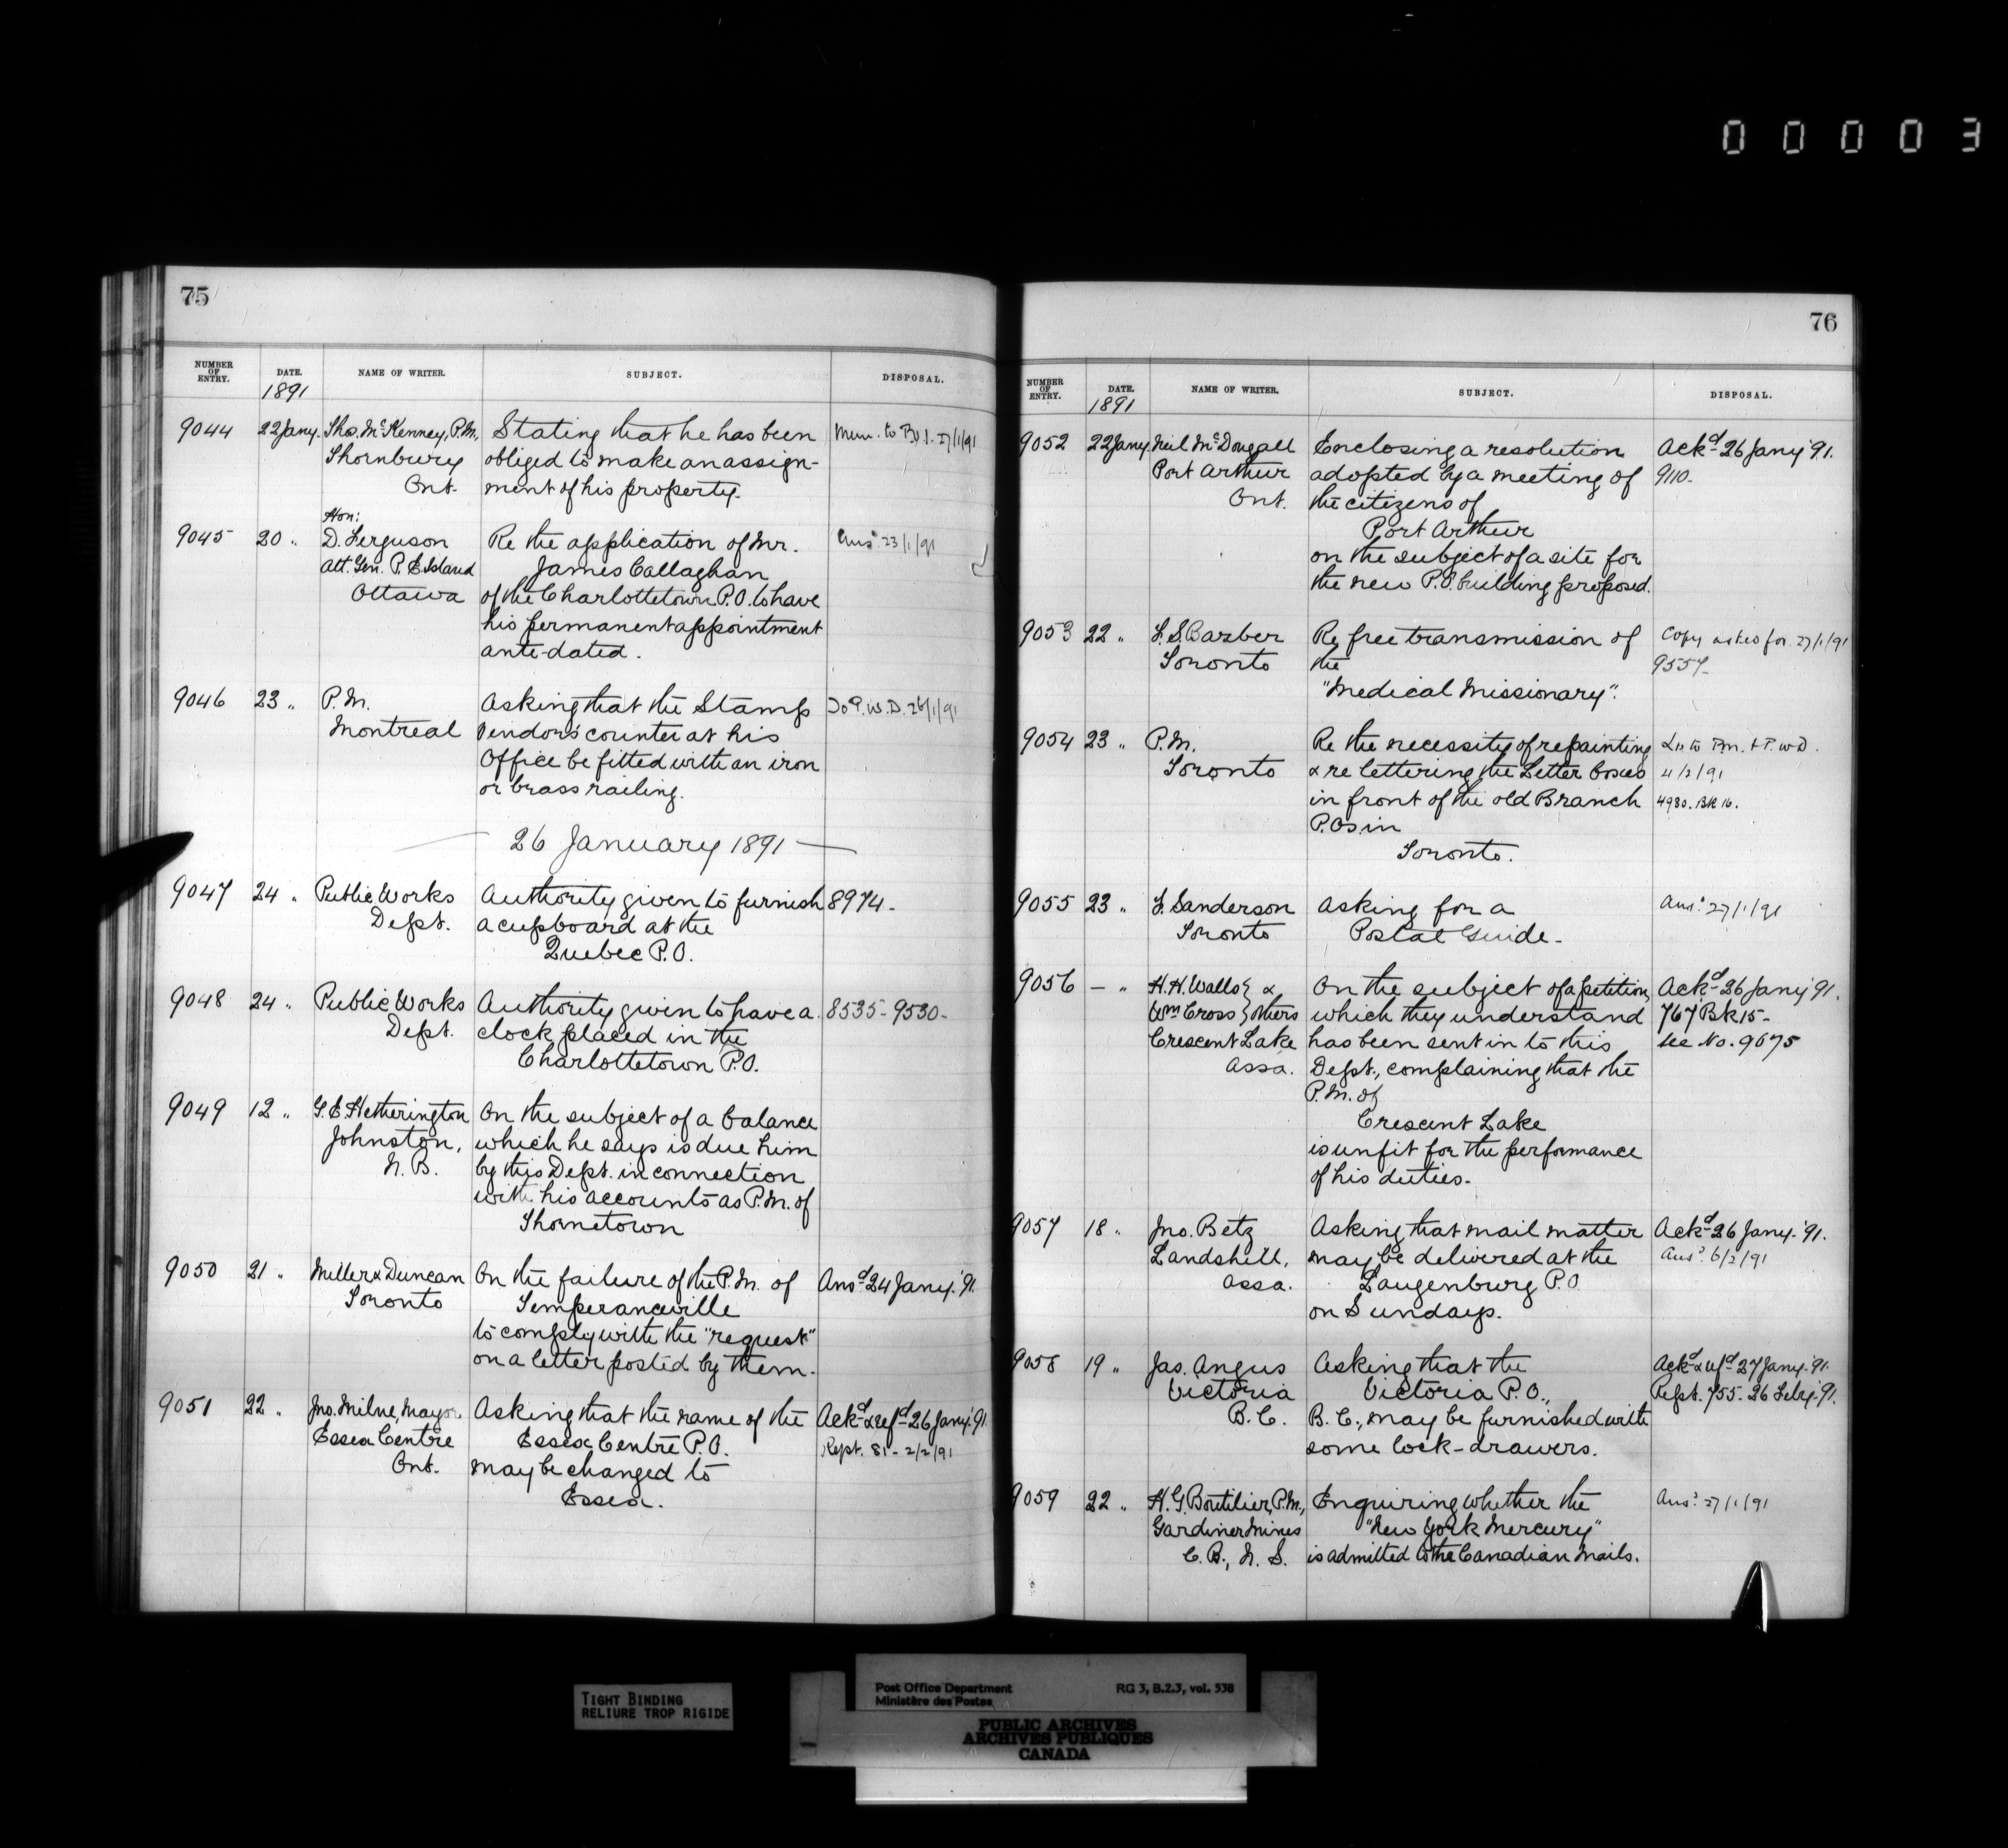 00003
75
NUMBER OF ENTRY. DATE. 1891 NAME OF WRITER. SUBJECT. DISPOSAL.
9044 22 Jany. Thos. McKenney, P.M., Stating that he has been Mem. to P.O.I. 27/1/91
Thornbury obliged to make an assign-
Ont. ment of his property.
Hon:
9045 20 " D. Ferguson Re the application of Mr. Ansd 23/1/91
Att. Gen. P.E. Island James Callaghan
Ottawa of the Charlottetown P.O. to have
his permanent appointment
ante-dated.
9046 23 " P.M. Asking that the Stamp To P.W.D. 26/1/91
Montreal Vendors' counter at his
Office be fitted with an iron
or brass railing.
— 26 January 1891 —
9047 24 " Public Works Authority given to furnish 8974-
Dept. a cupboard at the
Quebec P.O.
9048 24 " Public Works Authority given to have a 8535-9530-
Dept. clock placed in the
Charlottetown P.O.
9049 12 " G.E. Hetherington On the subject of a balance
Johnston, which he says is due him
N.B. by this Dept. in connection
with his accounts as P.M. of
Thornetown
9050 21 " Miller & Duncan On the failure of the P.M. of Ansd 24 Jany. '91.
Toronto Temperanceville
to comply with the "request"
on a letter posted by them.
9051 22 " Jno. Milne, Mayor Asking that the name of the Ackd & refd 26 Jany. '91
Essex Centre Essex Centre P.O. Rept. 81- 2/2/91
Ont. may be changed to
Essex.
76
NUMBER OF ENTRY. DATE. 1891 NAME OF WRITER. SUBJECT. DISPOSAL.
9052 22 Jany. Neil McDougall Enclosing a resolution Ackd 26 Jany '91.
Port Arthur adopted by a meeting of 9110-
Ont. the citizens of
Port Arthur
on the subject of a site for
the new P.O. building proposed.
9053 22 " F.S. Barber Re free transmission of Copy asked for 27/1/91
Toronto the 9557-
"Medical Missionary".
9054 23 " P.M. Re the necessity of repainting Lrs to P.M. & P.W.D.
Toronto & re lettering the Letter boxes 4/2/91
in front of the old Branch 4980. Bk 16.
P.Os in
Toronto.
9055 23 " F. Sanderson Asking for a Ansd 27/1/91
Toronto Postal Guide.
9056 — " H.H. Walls } & On the subject of a petition, Ackd 26 Jany '91.
Wm Cross } others which they understand 767 Bk 15-
Crescent Lake has been sent in to this See No. 9675
Assa. Dept., complaining that the
P.M. of
Crescent Lake
is unfit for the performance
of his duties.
9057 18 " Jno. Betz Asking that mail matter Ackd 26 Jany. '91.
Landshell, may be delivered at the Ansd 6/2/91
Assa. Langenburg P.O.
on Sundays.
9058 19 " Jas. Angus Asking that the Ackd & refd 27 Jany. '91.
Victoria Victoria P.O., Rept. 755- 26 Feby. '91.
B.C. B.C., may be furnished with
some lock-drawers.
9059 22 " H.G. Boutilier, P.M., Enquiring whether the Ansd 27/1/91
Gardiner Mines "New York Mercury"
C.B., N.S. is admitted to the Canadian Mails.
TIGHT BINDING
RELIURE TROP RIGIDE
Post Office Department RG 3, B.2.3, vol. 538
Ministère des Postes
PUBLIC ARCHIVES
ARCHIVES PUBLIQUES
CANADA